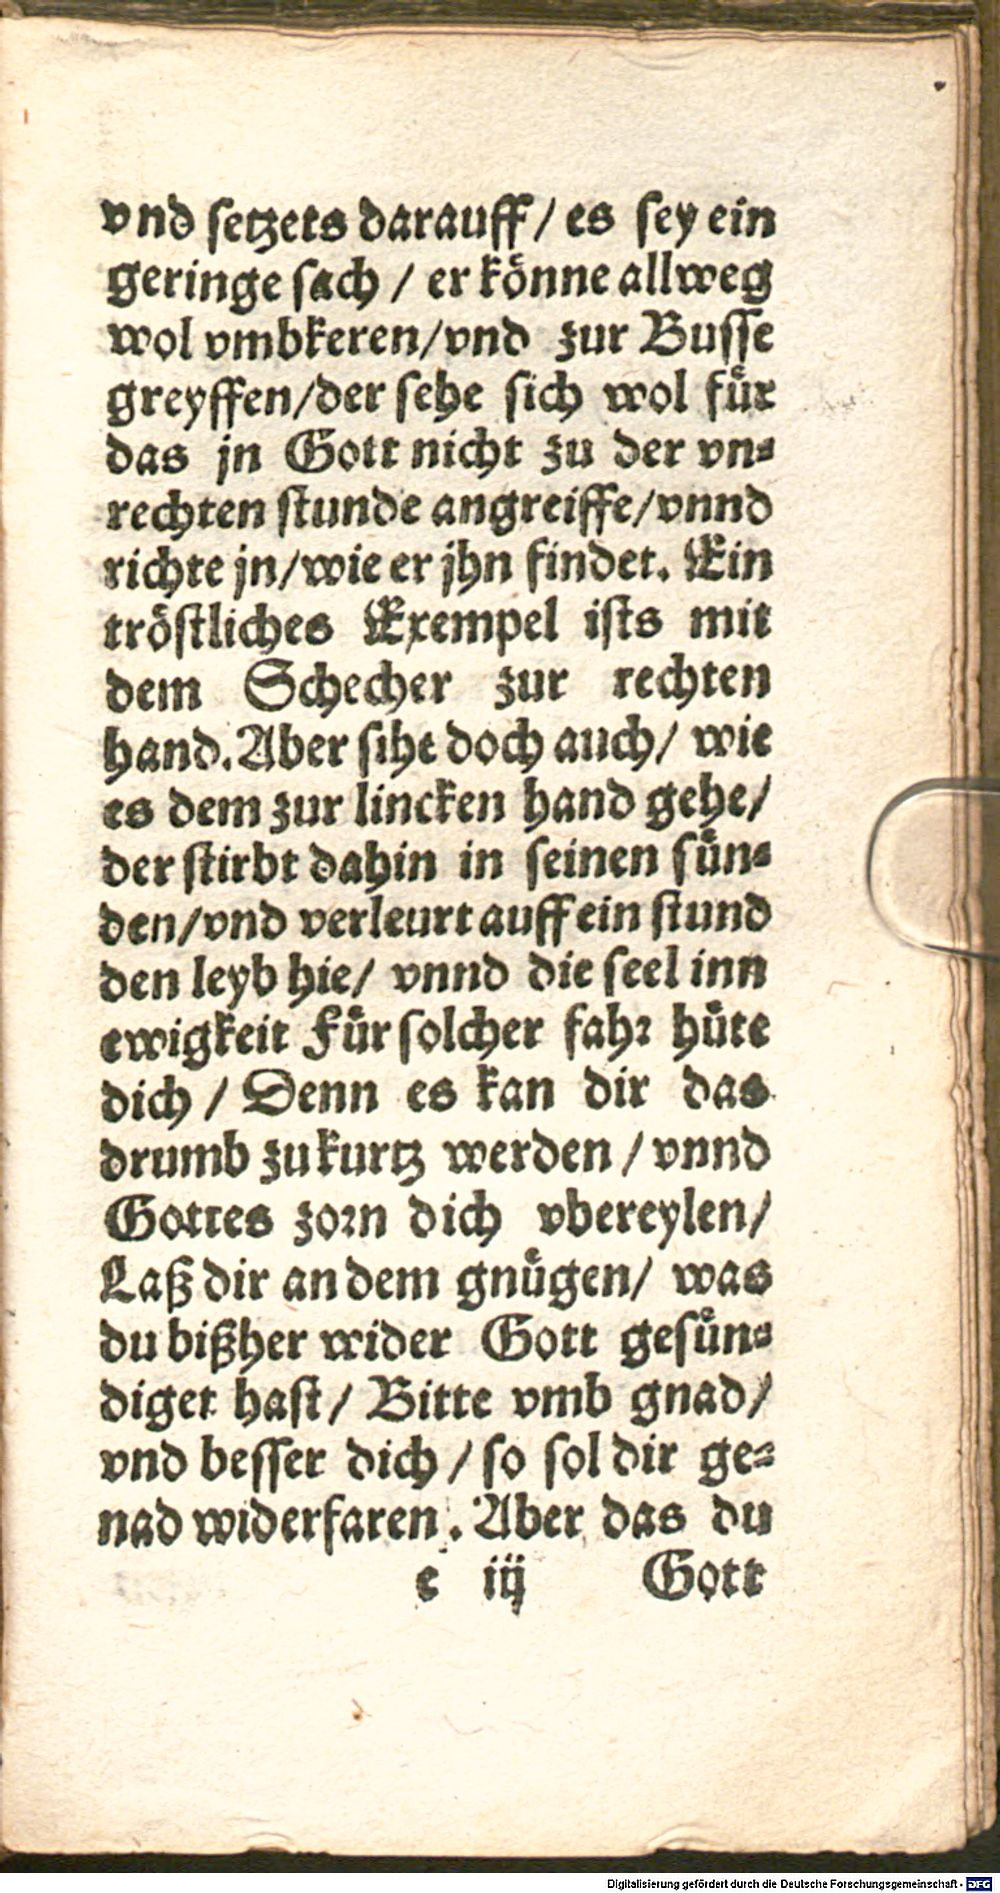 vnd setzets darauff / es sey ein
geringe sach / er könne allweg
wol vmbkeren/vnd zur Busse
greyffen/der sehe sich wol für
das jn Gott nicht zu der vn⸗
rechten stunde angreiffe/vnnd
richte jn/wie er jhn findet. Ein
tröstliches Exempel ists mit
dem Schecher zur rechten
hand. Aber siht doch auch/ wie
es dem zur lincken hand gehe/
der stirbt dahin in seinen sün⸗
den/vnd verleurt auff ein stund
den leyb hie/ vnnd die seel inn
ewigkeit Für solcher fahr hüte
dich / Denn es kan dir das
drumb zu kurtz werden / vnnd
Gottes zorn dich vbereylen/
Laß dir an dem gnügen/ was
du bißher wider Gott gesün⸗
diget hast / Bitte vmb gnad/
vnd besser dich / so sol dir ge⸗
nad widerfaren. Aber das du
e iij Gott
Digitalisierung gefördert durch die Deutsche Forschungsgemeinschaft - DFG